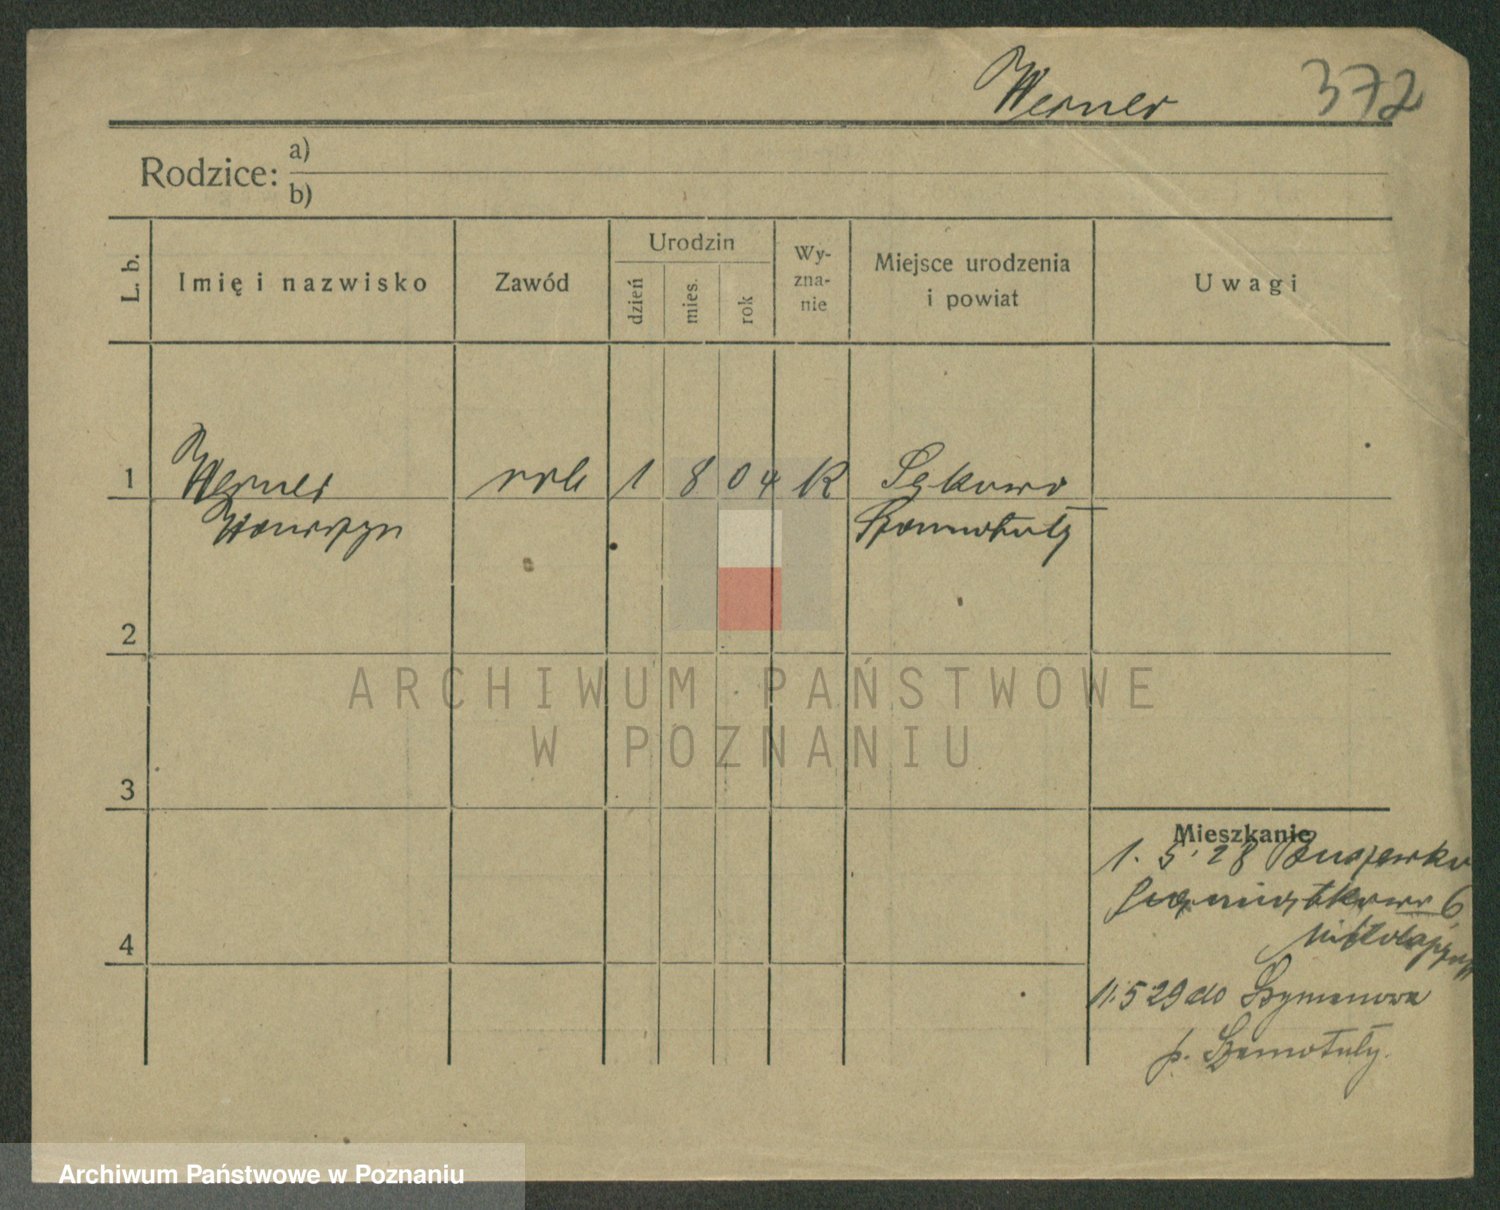 Werner 372
Rodzice: a)
b)
L. b.
Imię i nazwisko
Zawód
Urodzin
dzień
mies.
rok
Wy-
zna-
nie
Miejsce urodzenia
i powiat
Uwagi
1 Werner rob 1 8 04 K Sękowo
Szamotuły
2
3
4
Mieszkanie
1. 5. 28
6
11. 5 29 do
p. Szamotuły.
ARCHIWUM PAŃSTWOWE
W POZNANIU
Archiwum Państwowe w Poznaniu